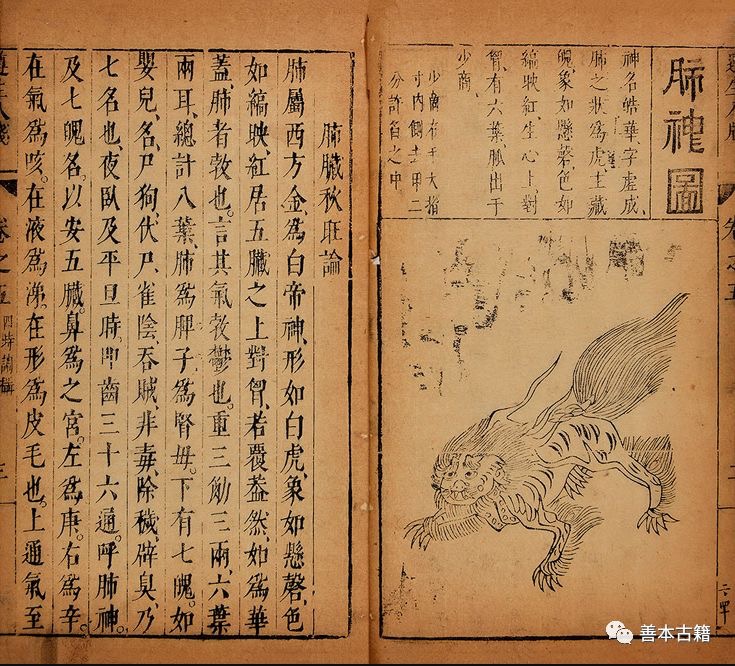 肺神圖
神名皓華、字虛成、
肺之狀為虎、主藏
魄、象如懸磬、色如
縞映紅、生心上、對
胷、有六葉、脉出于
少商、
少商在手大指
寸内側去甲二
分許皆之中
肺臟秋旺論
肺屬西方金、為白帝神、形如白虎、象如懸磬、色
如縞映紅、居五臟之上、對胷、若覆葢然、如為華
葢、肺者敦也、言其氣敦鬱也。重三觔三兩、六葉
兩耳、總計八葉、肺為脾子、為腎母。下有七魄、如
嬰兒、名尸狗、伏尸、雀陰、吞賊、非毒、除穢、辟臭、乃
七名也、夜臥及平旦時、叩齒三十六通、呼肺神、
及七魄名、以安五臟。鼻為之宮。左為庚。右為辛。
在氣為咳。在液為涕。在形為皮毛也。上通氣至
卷之五
四時調攝
三
善本古籍